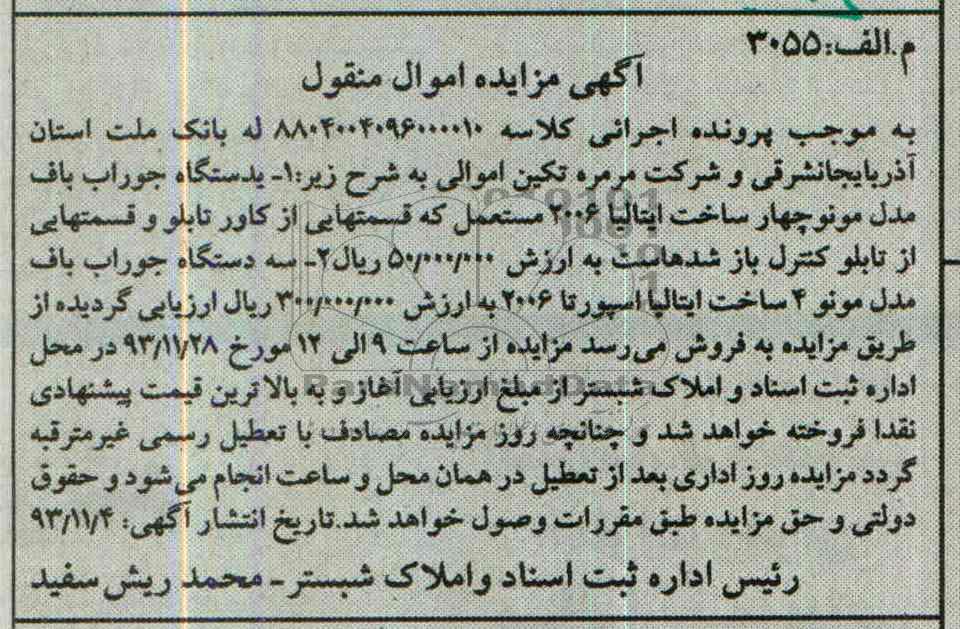 م.الف:۳۰۵۵
آگهی مزایده اموال منقول
به موجب پرونده اجرائی کلاسه ۸۸۰۴۰۰۴۰۹۶۰۰۰۰۱۰ له بانک ملت استان
آذربایجانشرقی و شرکت مرمره تکین اموالی به شرح زیر:۱- یدستگاه جوراب باف
مدل مونوچهار ساخت ایتالیا ۲۰۰۶ مستعمل که قسمتهایی از کاور تابلو و قسمتهایی
از تابلو کنترل باز شدهاست به ارزش ۵۰/۰۰۰/۰۰۰ ریال۲- سه دستگاه جوراب باف
مدل مونو ۴ ساخت ایتالیا اسپورتا ۲۰۰۶ به ارزش ۳۰۰/۰۰۰/۰۰۰ ریال ارزیابی گردیده از
طریق مزایده به فروش می‌رسد مزایده از ساعت ۹ الی ۱۲ مورخ ۹۳/۱۱/۲۸ در محل
اداره ثبت اسناد و املاک شبستر از مبلغ ارزیابی آغاز و به بالاترین قیمت پیشنهادی
نقدا فروخته خواهد شد و چنانچه روز مزایده مصادف با تعطیل رسمی غیرمترقبه
گردد مزایده روز اداری بعد از تعطیل در همان محل و ساعت انجام می‌شود و حقوق
دولتی و حق مزایده طبق مقررات وصول خواهد شد.تاریخ انتشار آگهی: ۹۳/۱۱/۴
رئیس اداره ثبت اسناد واملاک شبستر- محمد ریش سفید